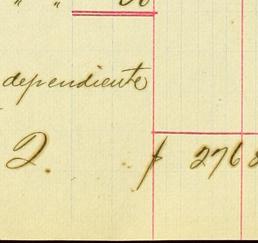 " "
dependiente
2. $ 2768